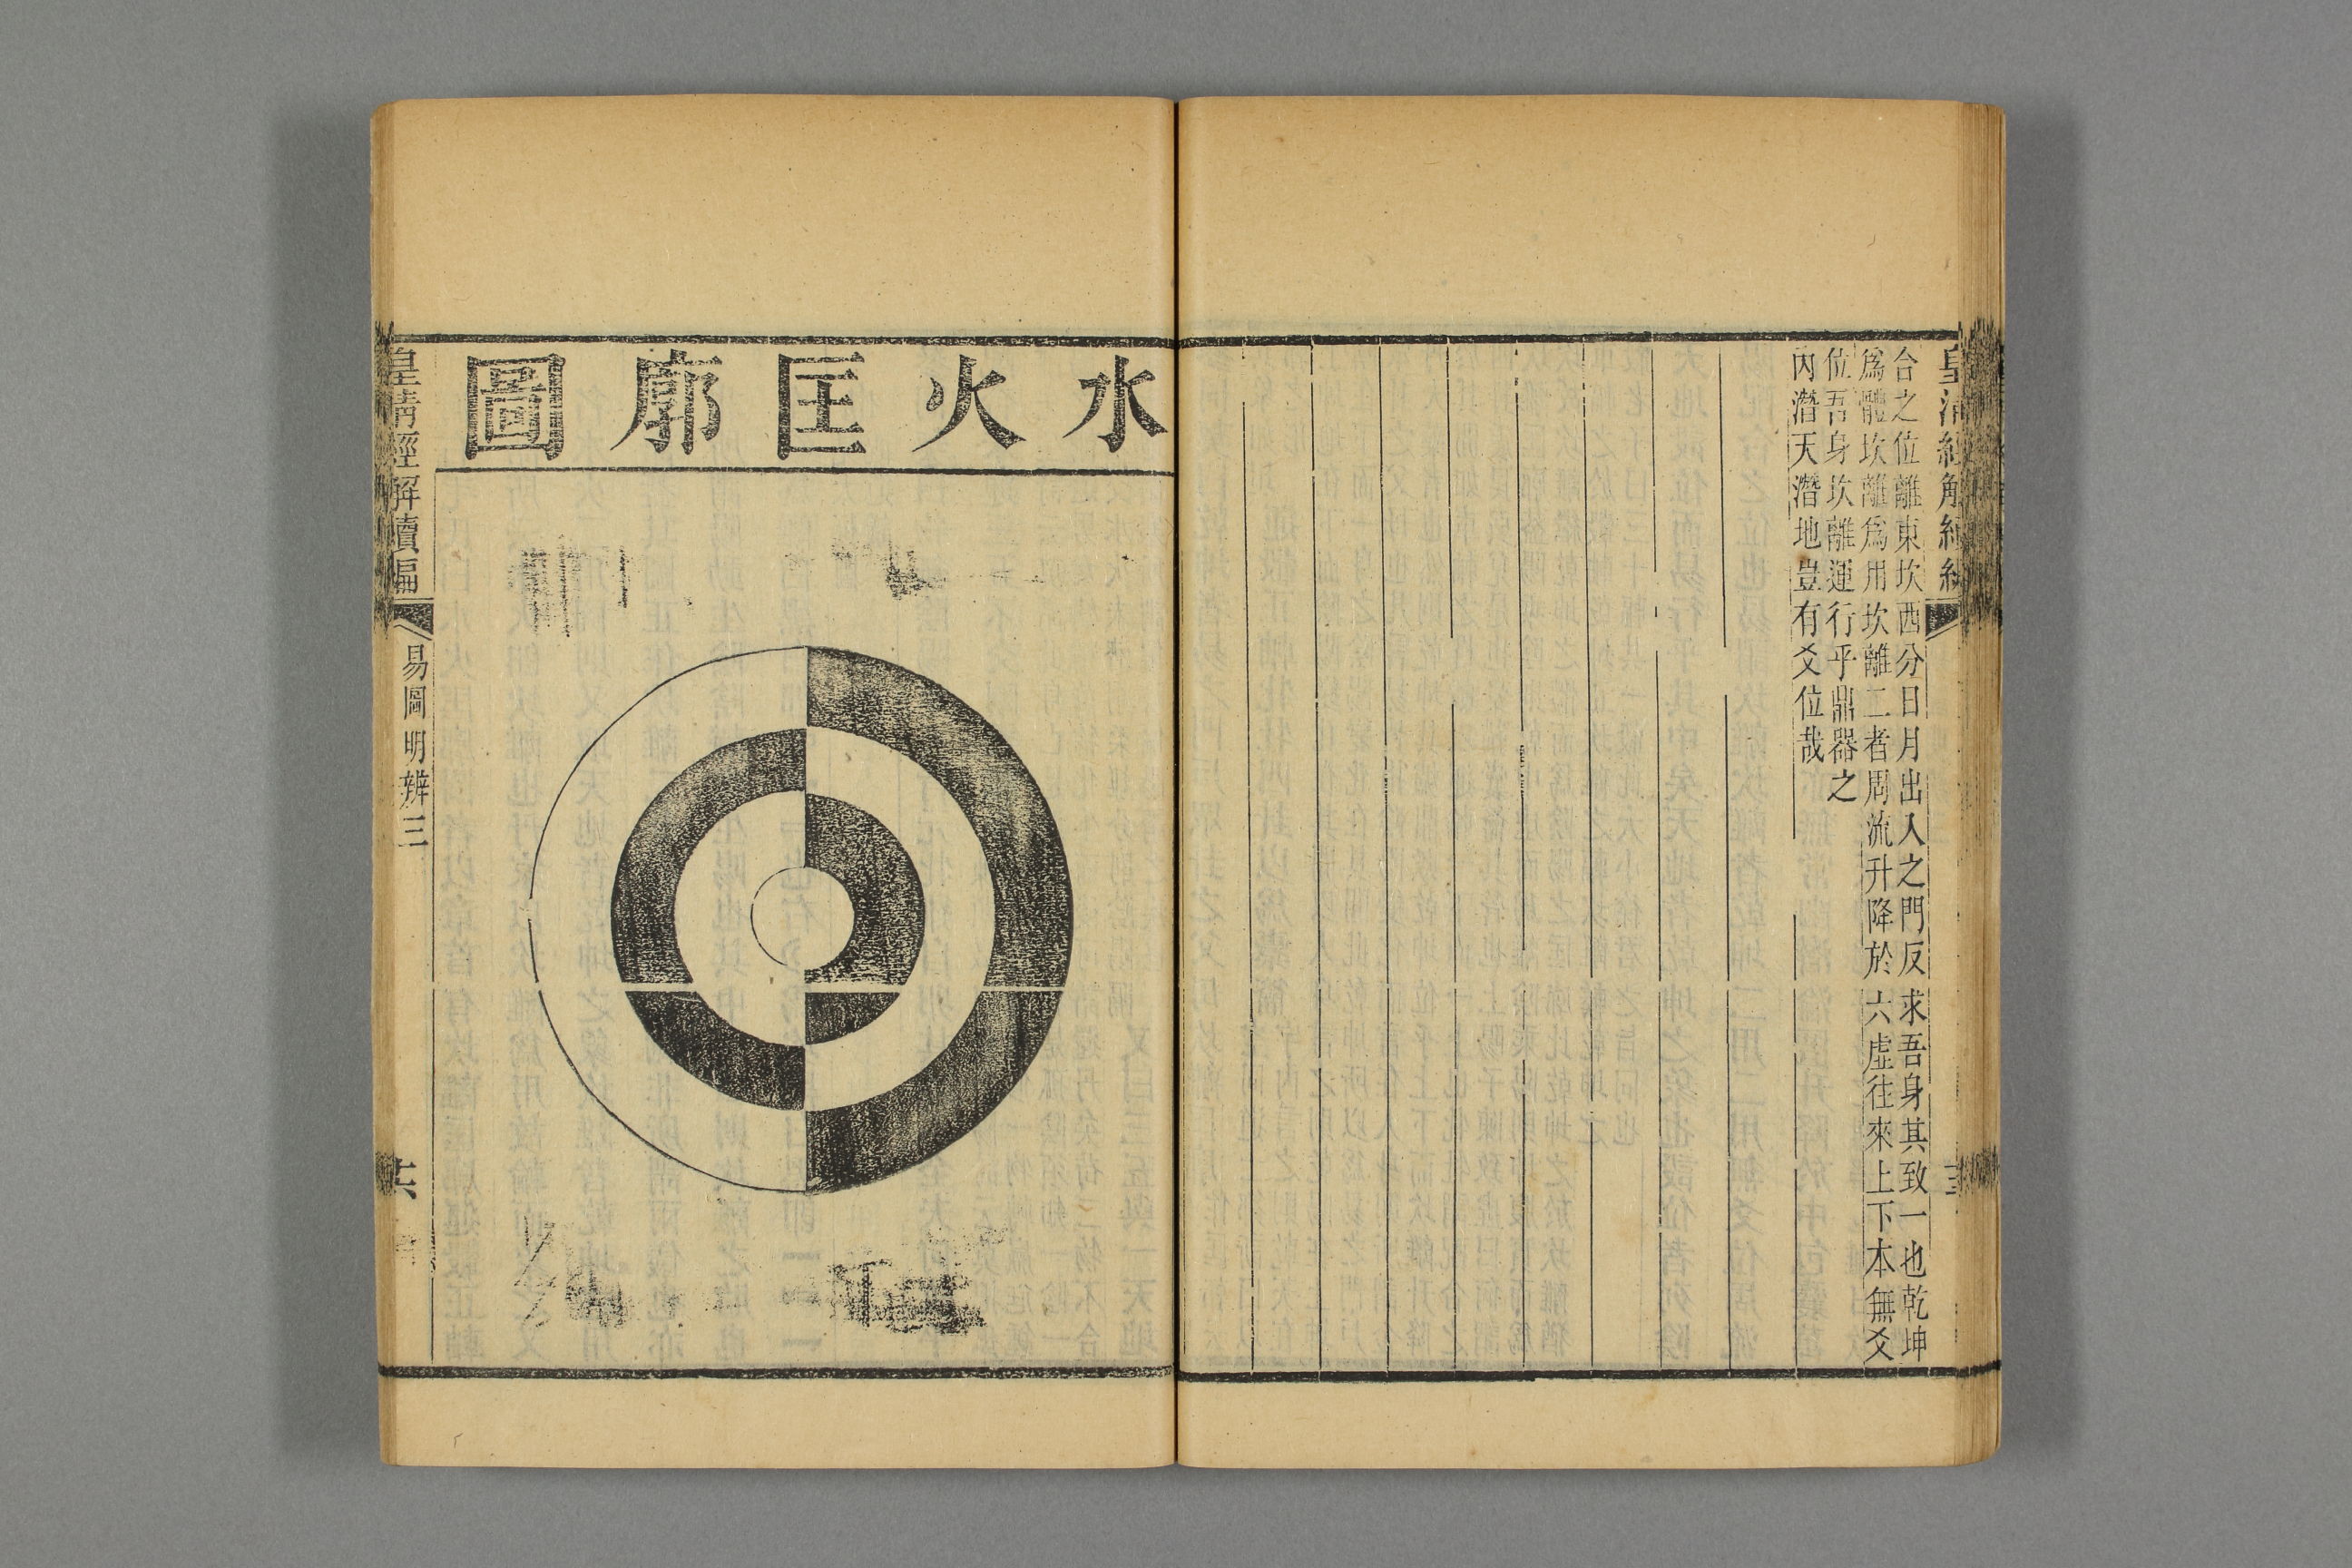 合之位離東坎西分日月出入之門反求吾身其致一也乾坤
爲體坎離爲用坎離二者周流升降於六虛往來上下本無爻
位吾身坎離運行乎鼎器之
內潛天潛地豈有爻位哉
水火匡廓圖
皇清經解續編
易圖明辨三